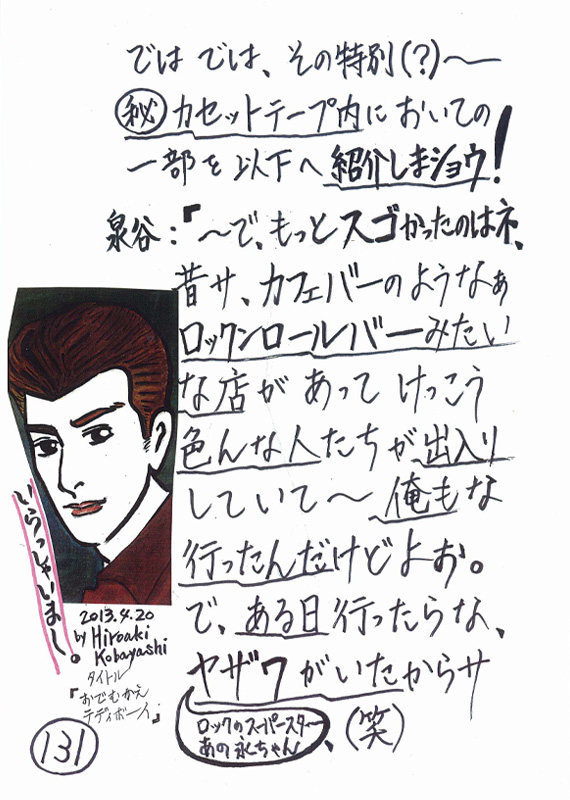 では では、その特別(?)〜
㊙ カセットテープ内においての
一部を以下へ紹介しまショウ!
泉谷:『〜で、もっとスゴかったのはネ、
昔サ、カフェバーのようなぁ
ロックンロールバーみたい
な店があってけっこう
色んな人たちが出入り
していて〜俺もな
行ったんだけどよぉ。
で、ある日行ったらな、
ヤザワがいたからサ
ロックのスーパースター
あの永ちゃん
、(笑)
いらっしゃいまし。
2013.4.20
by Hiroaki
Kobayashi
タイトル
『おでむかえ
テディボーイ』
131